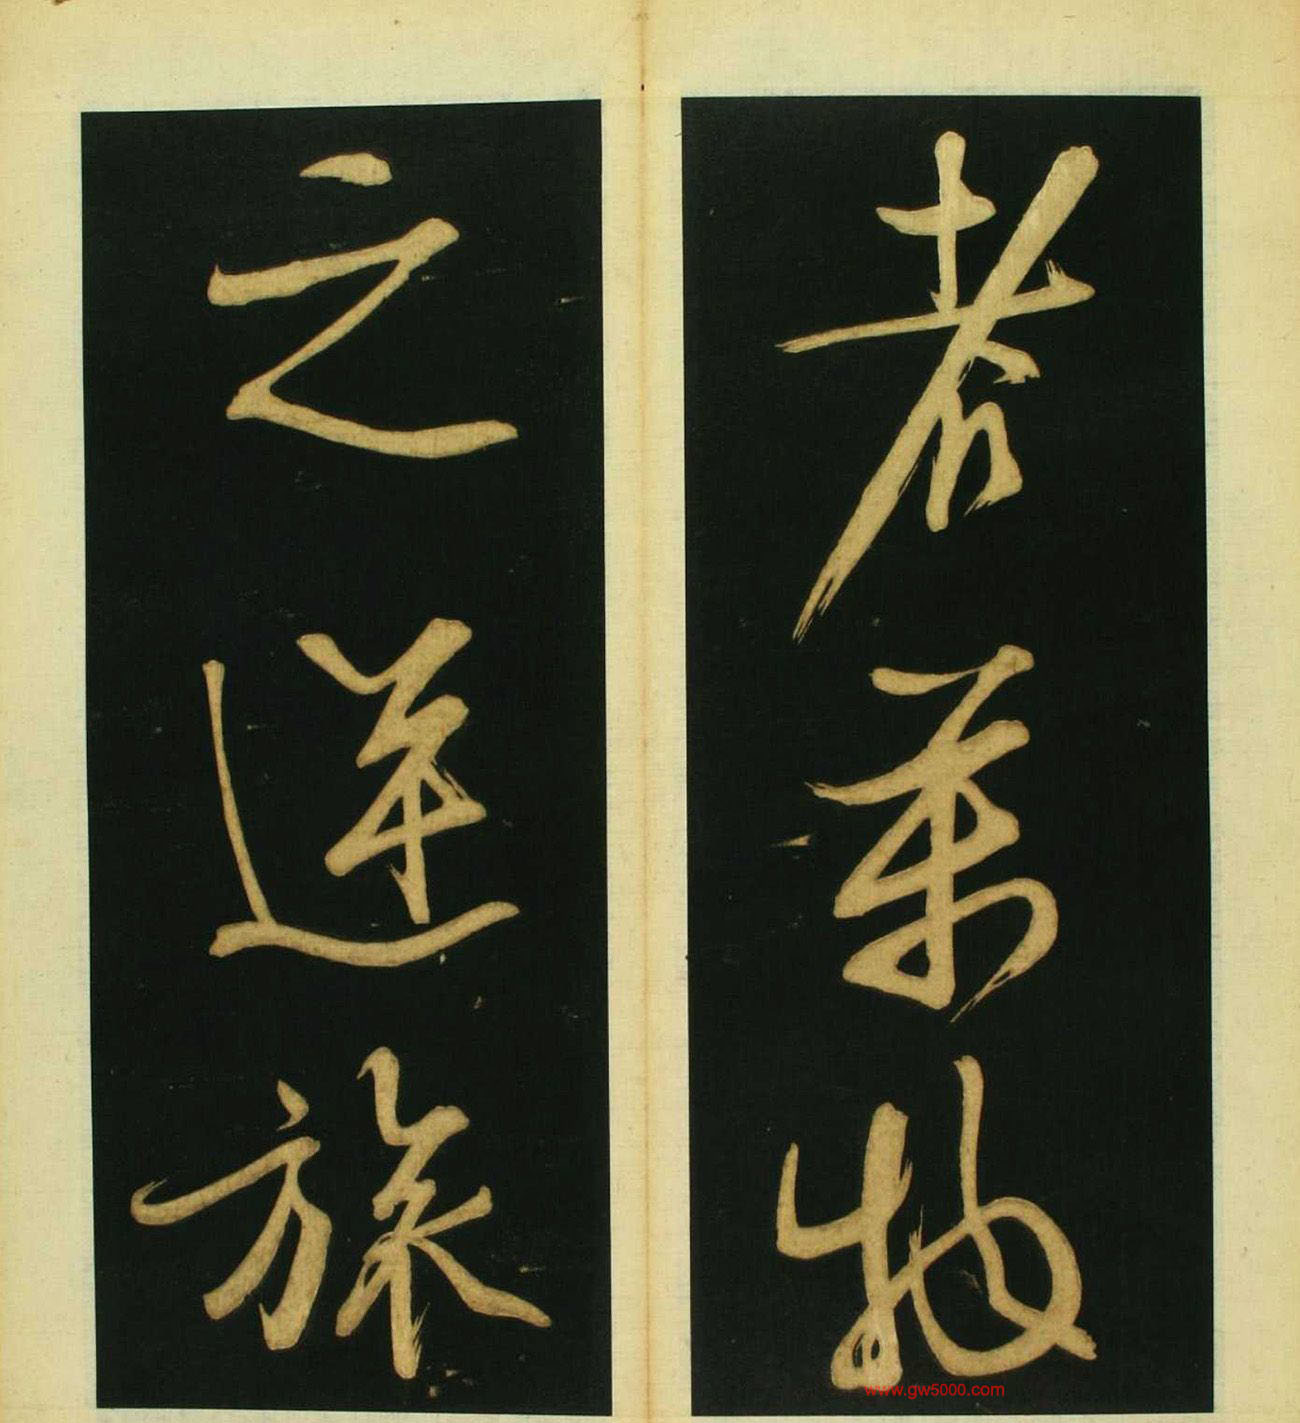 者萬物
之逆旅
www.gw5000.com